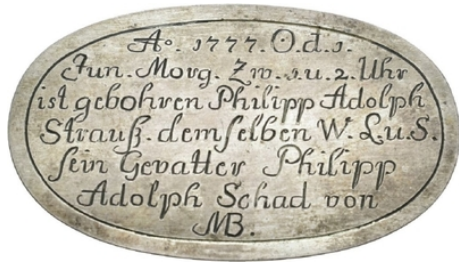 Ao. 1777. O. d. 1.
Jun. Morg. Zw. 1. u. 2. Uhr
ist gebohren Philipp Adolph
Strauß. demselben W. L. u. S.
sein Gevatter Philipp
Adolph Schad von
MB.